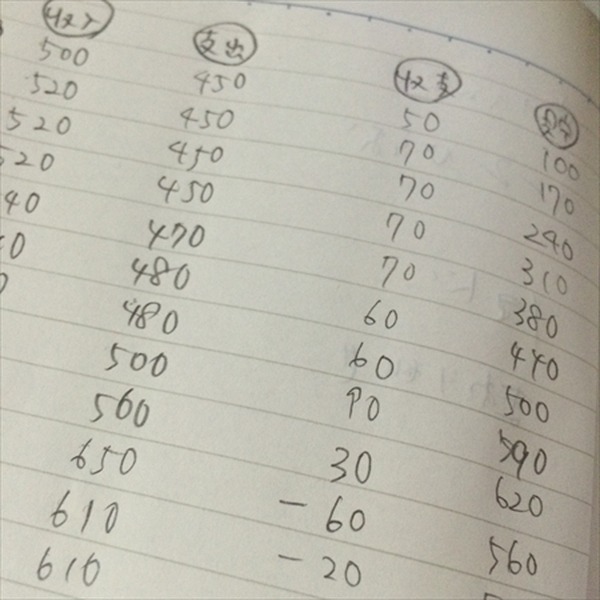 収入 支出 収支
500 450 50 100
520 450 70 170
520 450 70 240
520 450 70 310
40 470 70 380
40 480 60 440
0 480 60 500
500 90 590
560 30 620
650 -60 560
610 -20
610